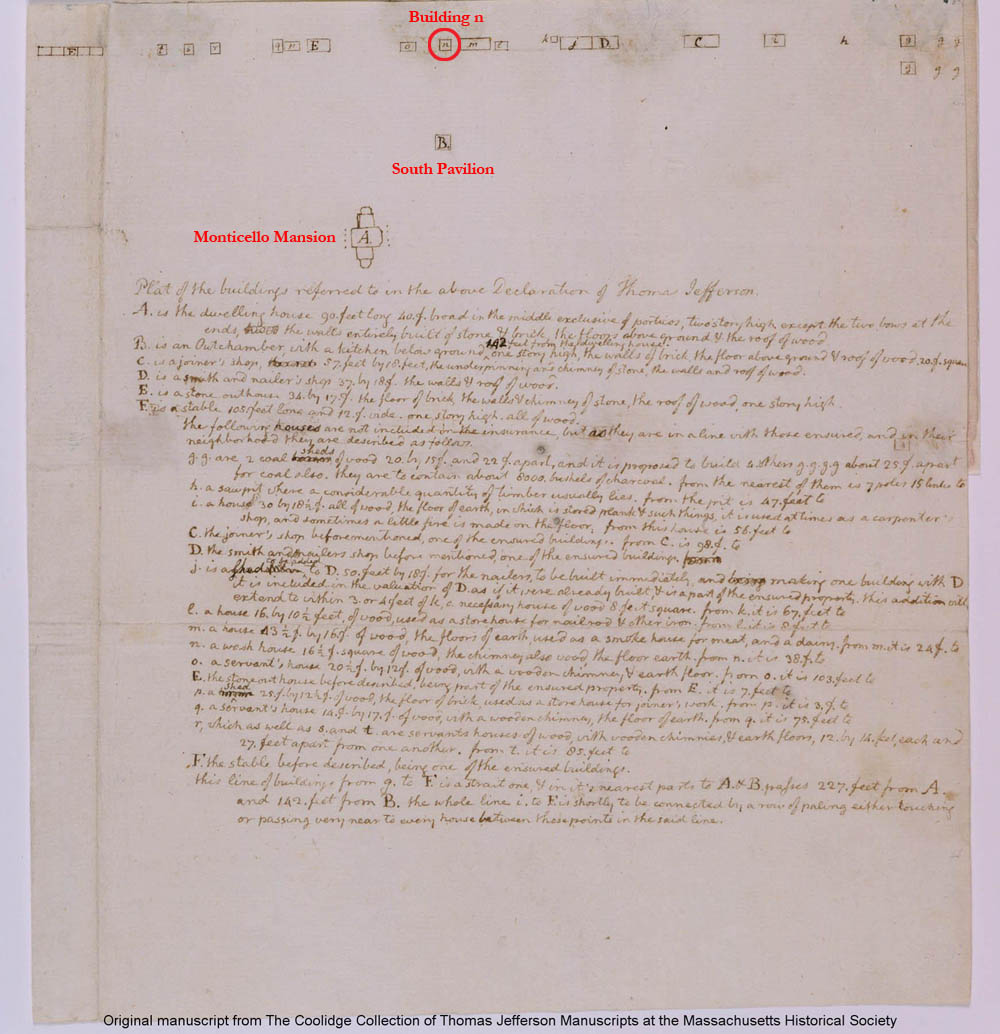 Building n
F t s r q p E o n m l k j D C i h g g g
g g g
B.
South Pavilion
Monticello Mansion
A.
Plat of the buildings referred to in the above Declaration of Thomas Jefferson.
A. is the dwelling house 90. feet long 40. f. broad in the middle exclusive of porticos, two story high except the two bows at the
ends, the walls entirely built of stone & brick, the floors above ground & the roof of wood
B. is an Outchamber, with a kitchen below ground, 142 feet from the dwelling house. one story high, the walls of brick, the floor above ground & roof of wood. 20. f. square
C. is a joiner's shop, 57. feet by 18. feet, the underpinning and chimney of stone, the walls and roof of wood.
D. is a smith and nailer's shop 37. by 18 f. the walls & roof of wood.
E. is a stone outhouse 34. by 17. f. the floor of brick, the walls & chimney of stone, the roof of wood, one story high.
F. is a stable 105. feet long and 12. f. wide. one story high. all of wood.
the following houses are not included in the insurance, but as they are in a line with those ensured, and in their
neighborhood they are described as follows.
g. g. are 2 coal sheds of wood 20. by 15 f. and 22 f. apart, and it is proposed to build 4. others g. g. g. g about 25 f. apart
for coal also. they are to contain about 8000. bushels of charcoal. from the nearest of them is 7 poles 15 links to
h. a sawpit where a considerable quantity of timber usually lies. from the pit is 47. feet to
i. a house 30 by 18 ½ f. all of wood, the floor of earth, in which is stored plank & such things, it is used at times as a carpenter's
shop, and sometimes a little fire is made on the floor. from this house is 56. feet to
C. the joiner's shop beforementioned, one of the ensured buildings. from C. is 98. f. to
D. the smith and nailers shop before mentioned, one of the ensured buildings.
j. is a shed to be added to D. 50. feet by 18 f. for the nailers, to be built immediately, and making one building with D
it is included in the valuation of D. as if it were already built, & is a part of the ensured property. this addition will
extend to within 3. or 4 feet of k, a necessary house of wood 8 feet square. from k. it is 67, feet to
l. a house 16. by 10 ½ feet, of wood, used as a storehouse for nailrod & other iron. from l. it is 8 feet to
m. a house 43 ½ f. by 16 f. of wood, the floors of earth, used as a smoke house for meat, and a dairy. from m. it is 24 f. to
n. a wash house 16 ½ f. square of wood, the chimney also wood, the floor earth. from n. it is 38 f. to
o. a servant's house 20 ½ f. by 12 f. of wood, with a wooden chimney, & earth floor. from o. it is 103. feet to
E. the stone out house before described, being part of the ensured property. from E. it is 7. feet to
p. a shed 25. f. by 12 ½ f. of wood, the floor of brick, used as a store house for joiner's work. from p. it is 3. f. to
q. a servant's house 14. f. by 17. f. of wood, with a wooden chimney, the floor of earth. from q. it is 75. feet to
r, which as well as s. and t. are servants houses of wood, with wooden chimnies, & earth floors, 12. by 14. feet, each and
27. feet apart from one another. from t. it is 85. feet to
F. the stable before described, being one of the ensured buildings.
this line of buildings from g. to F. is a strait one, & in it's nearest parts to A. & B. passes 227. feet from A.
and 142. feet from B. the whole line i. to F. is shortly to be connected by a row of paling either touching
or passing very near to every house between these points in the said line.
Original manuscript from The Coolidge Collection of Thomas Jefferson Manuscripts at the Massachusetts Historical Society